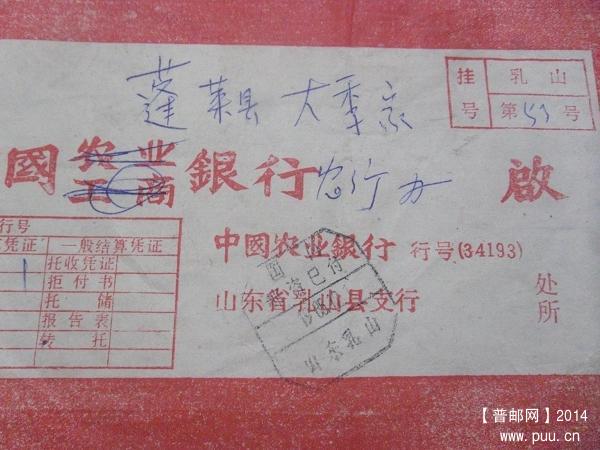 挂号 乳山
第53号
蓬莱县 大季家
国 农业 银行 农行办 啟
工商
行号
凭证 一般结算凭证
托收凭证
拒付书
托储
报告表
转托
中國农业銀行 行号(34193)
山东省乳山县支行
处所
已付
山东乳山
【普邮网】2014
www.puu.cn